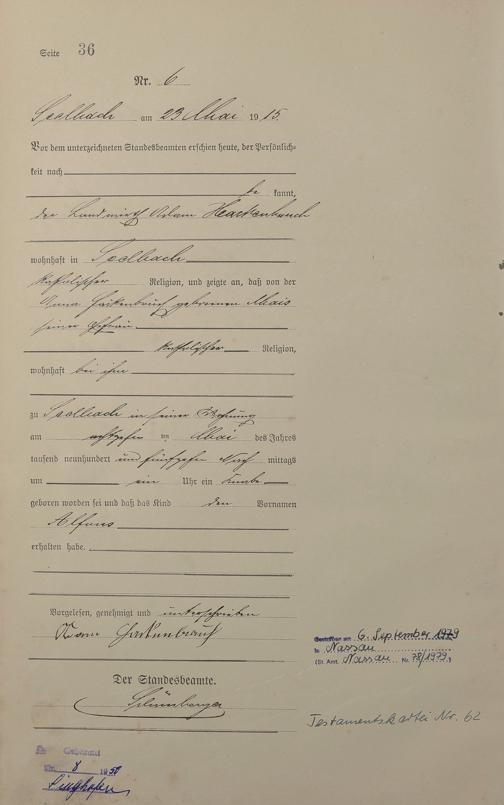 Seite 36
Nr. 6
Seelbach am 23 Mai 1915.
Vor dem unterzeichneten Standesbeamten erschien heute, der Persönlich-
keit nach
be kannt,
der Landwirth Adam Hackenbruch
wohnhaft in Seelbach
katholischer Religion, und zeigte an, daß von der
Anna Hackenbruch geborenen
seiner Ehefrau
katholischer Religion,
wohnhaft bei ihm
zu Seelbach in seiner Wohnung
am achtzehn ten Mai des Jahres
tausend neunhundert und fünfzehn Nach mittags
um ein Uhr ein Knabe
geboren worden sei und daß das Kind den Vornamen
Alfons
erhalten habe.
Vorgelesen, genehmigt und unterschrieben
Adam Hackenbruch
Der Standesbeamte.
Gestorben am 6. September 1979
in Nassau
(St. Amt. Nassau Nr. 78/1979.)
Testamentskartei Nr. 62
Nr. 8 1950
Singhofen